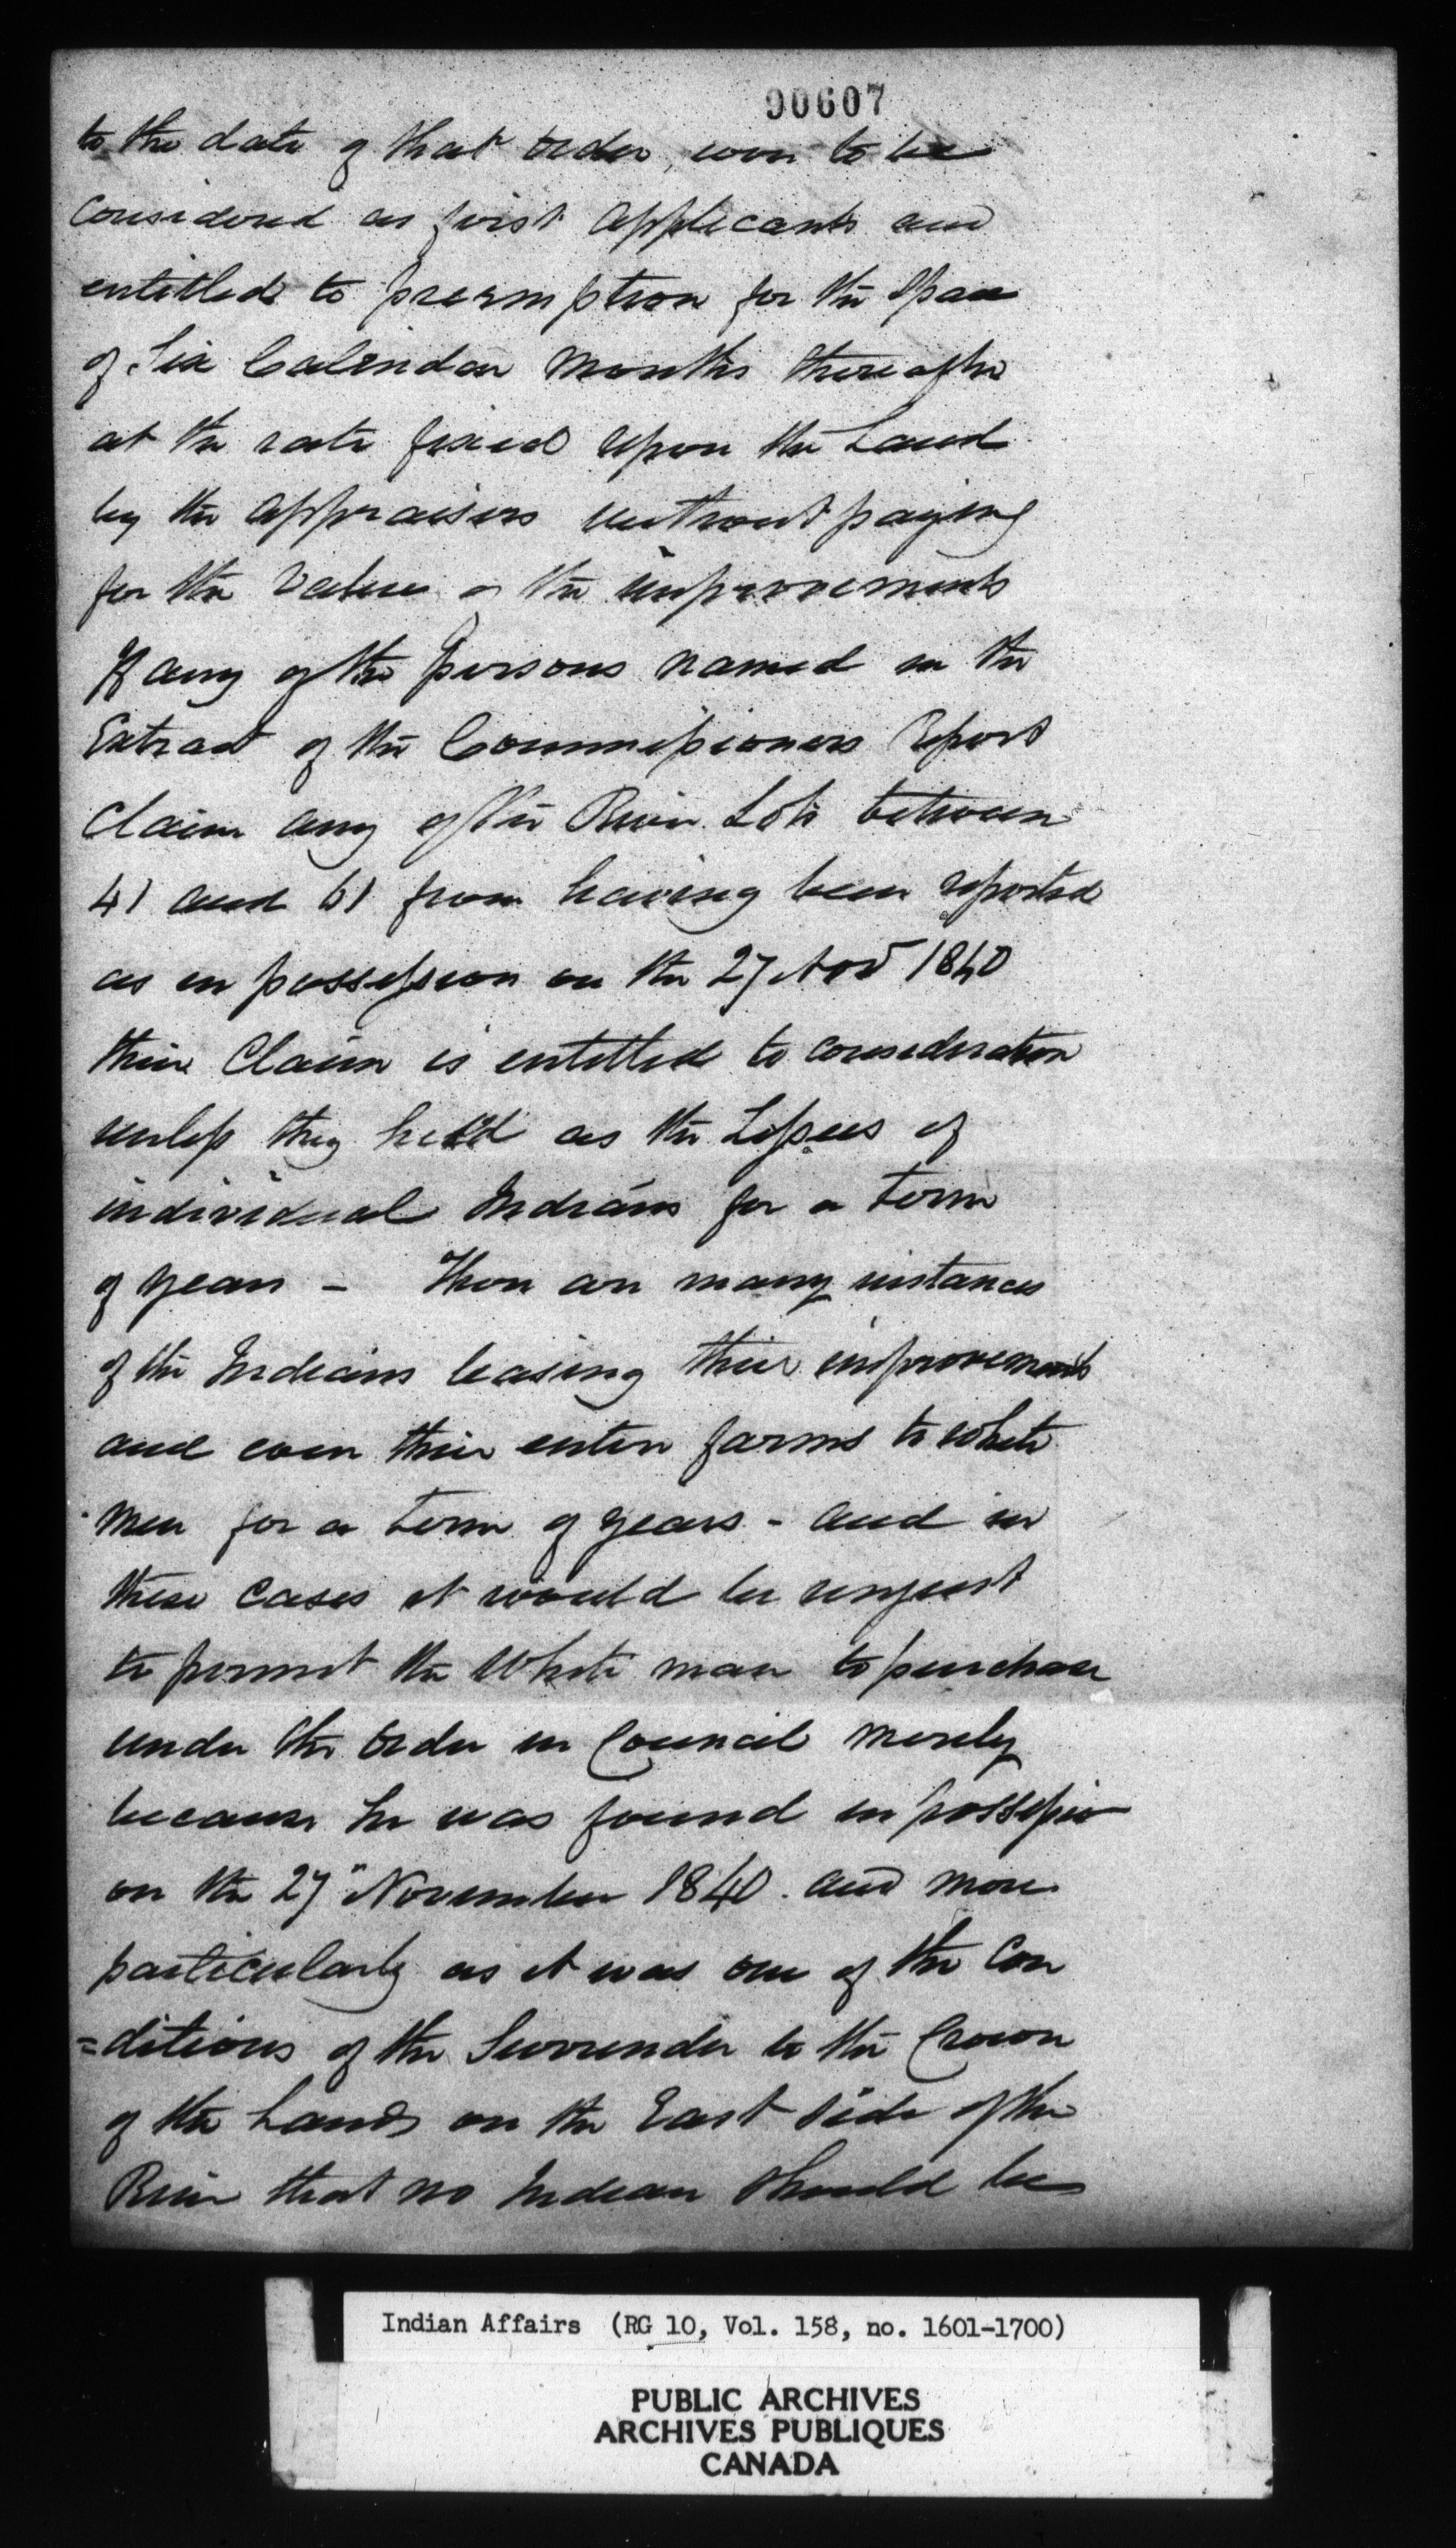 90607
to the date of that order, were to be
considered as first applicants and
entitled to preemption for the Space
of Six Calendar Months thereafter
at the rate fixed upon the Land
by the appraisers without paying
for the value of the improvements
If any of the persons named in the
Extract of the Commissioners Report
Claim any of the River Lots between
41 and 61 from having been reported
as in possession on the 27 Nov 1840
their Claim is entitled to consideration
unless they held as the Lessees of
individual Indians for a term
of years - There are many instances
of the Indians leasing their improvements
and even their entire farms to white
men for a term of years - and in
these cases it would be unjust
to permit the White man to purchase
under the order in Council merely
because he was found in possession
on the 27" November 1840. and more
particularly as it was one of the Con
=ditions of the Surrender to the Crown
of the Lands on the East side of the
River that no Indian should be
Indian Affairs (RG 10, Vol. 158, no. 1601-1700)
PUBLIC ARCHIVES
ARCHIVES PUBLIQUES
CANADA